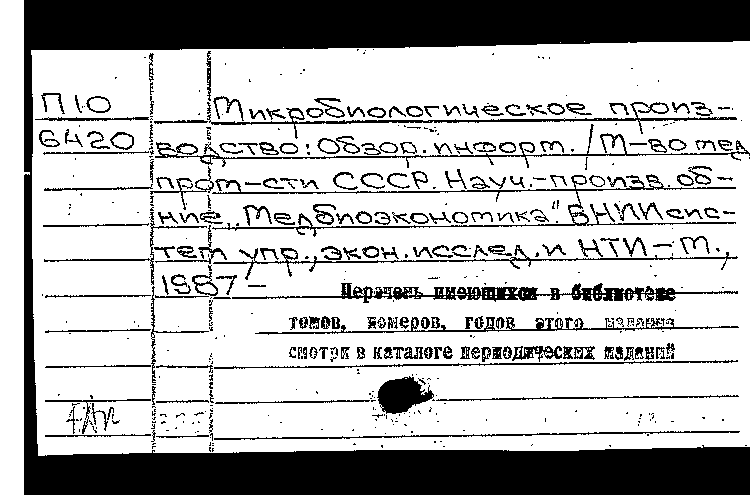 П10 Микробиологическое произ-
6420 водство: Обзор. информ. / М-во мед
пром-сти СССР. Науч.-произв. об-
ние „Медбиоэкономика". ВНИИ сис-
тем упр., экон. исслед. и НТИ.- М.,
1987 –
Перечень имеющихся в библиотеке
томов, номеров, годов этого издания
смотри в каталоге периодических изданий